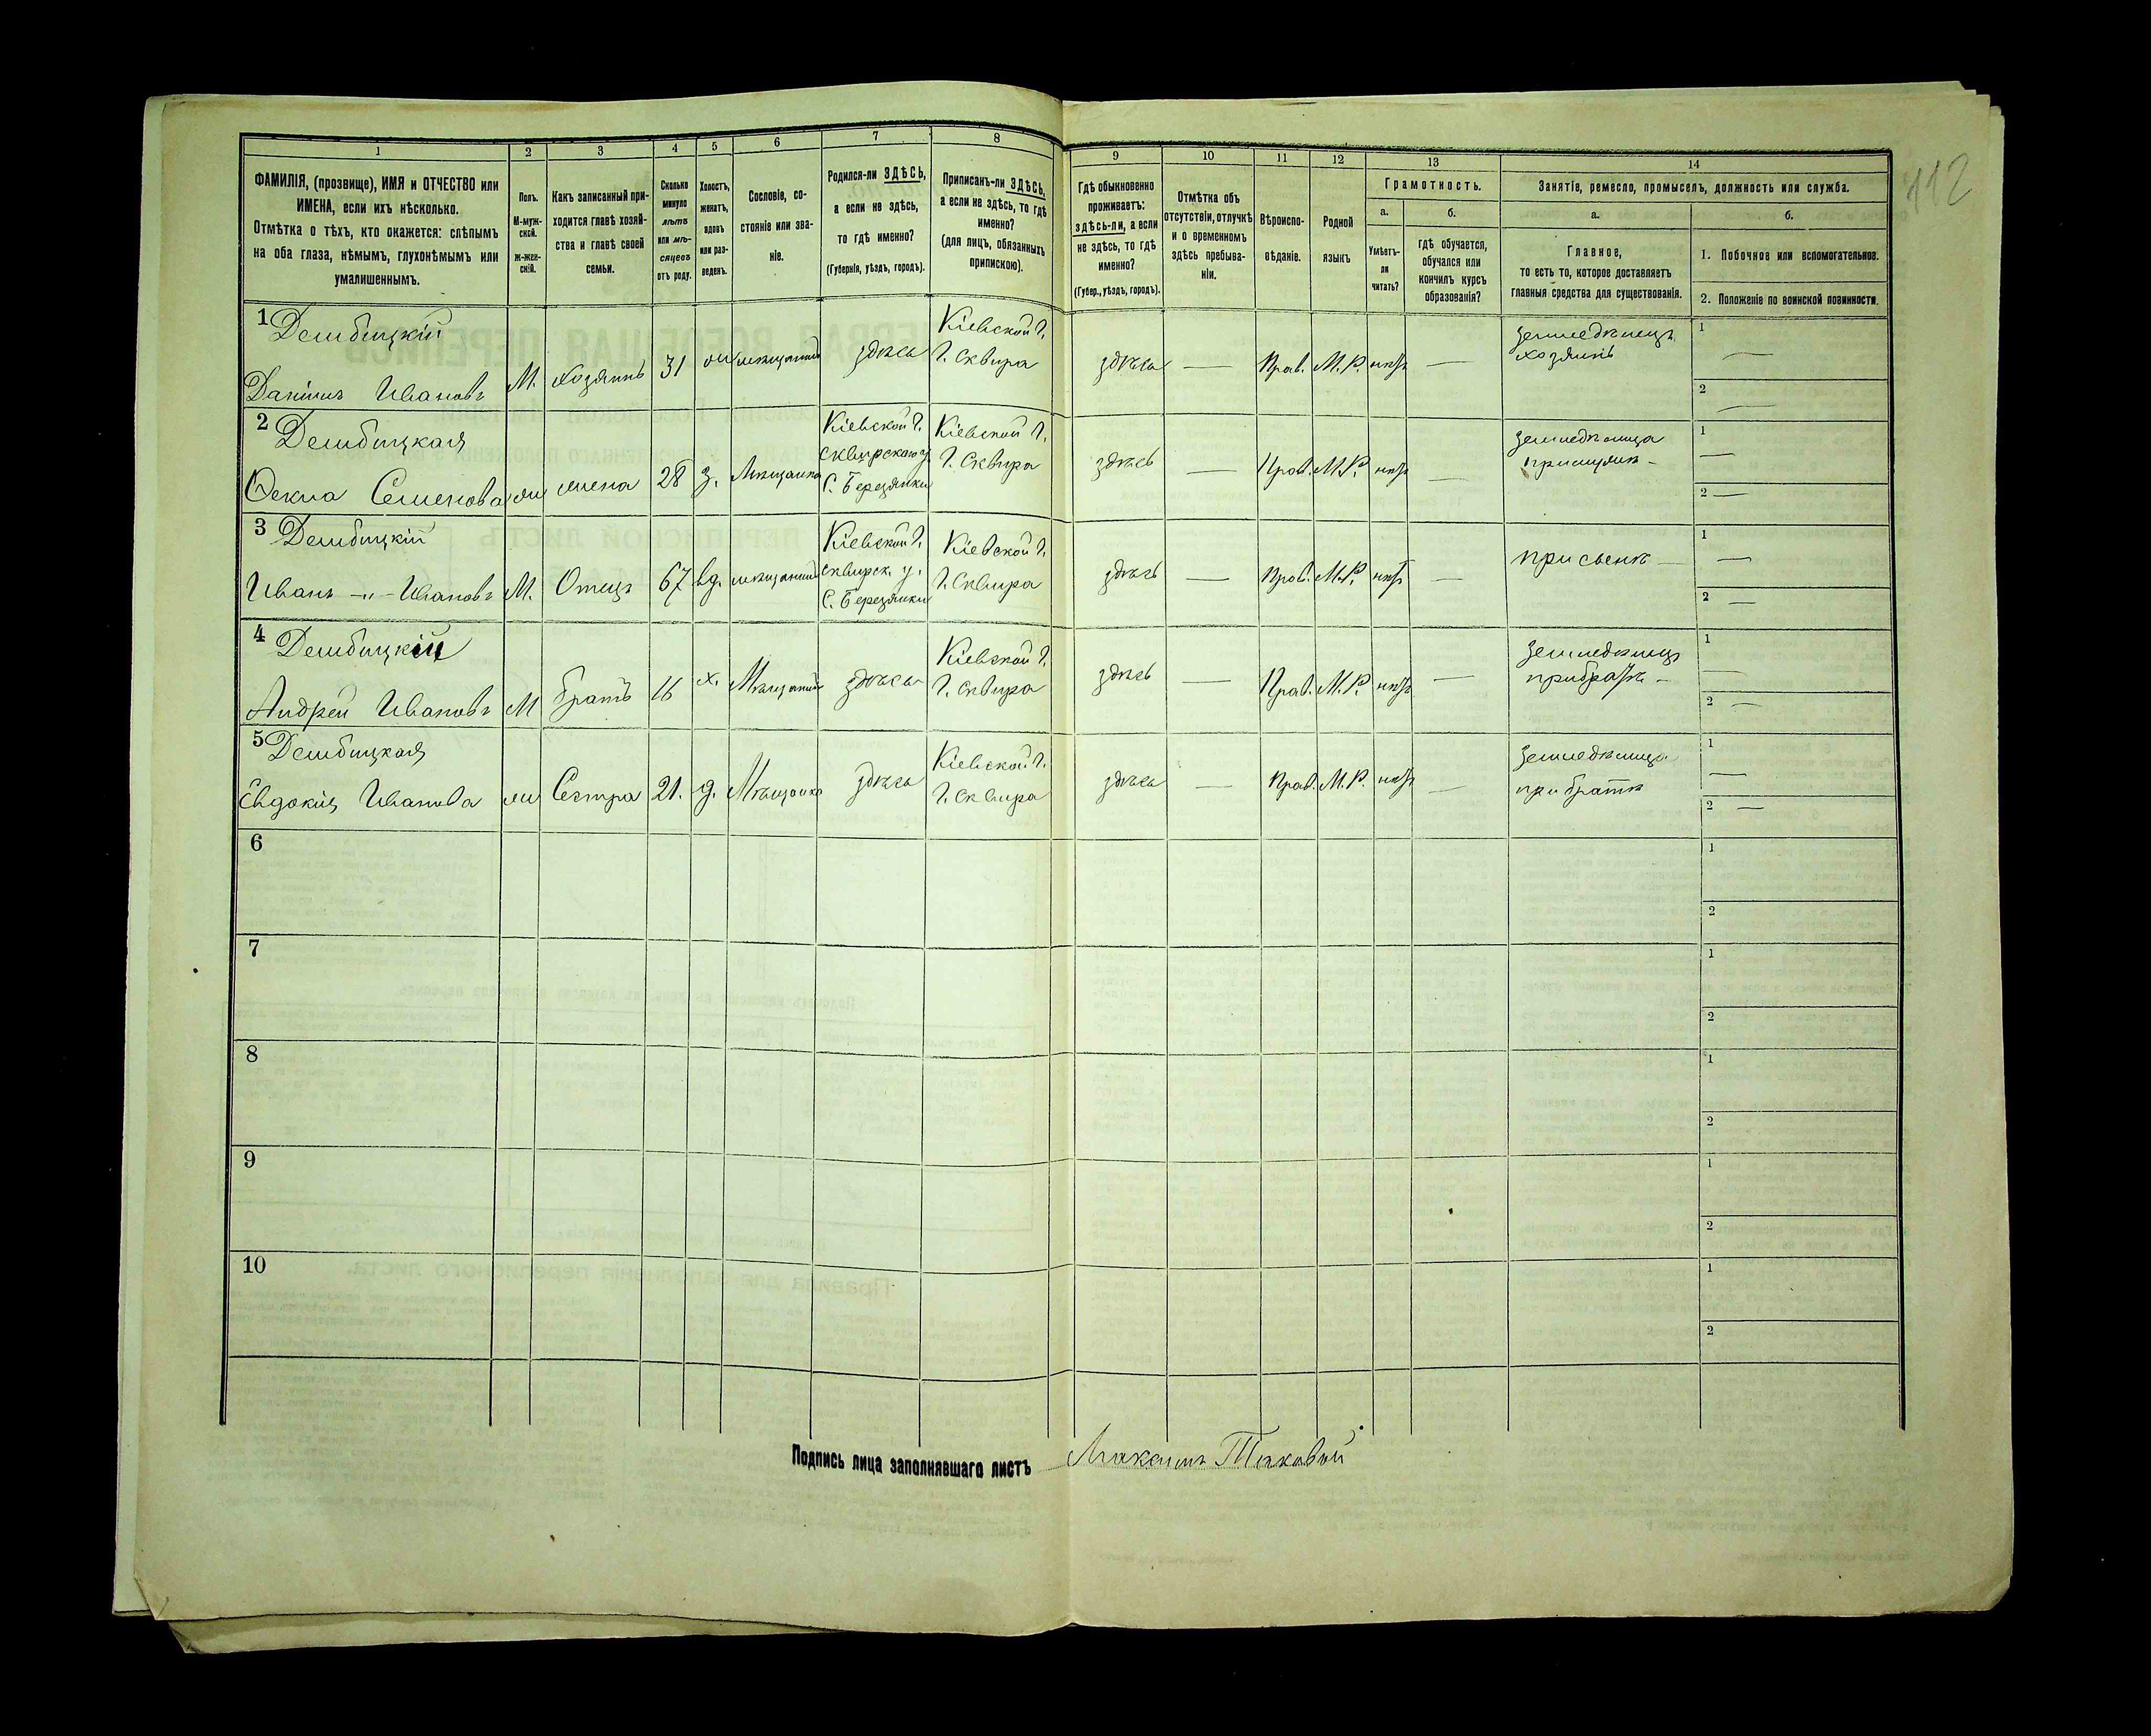 112
1
2
3
4
5
6
7
8
ФАМИЛІЯ, (прозвище), ИМЯ и ОТЧЕСТВО или
ИМЕНА, если ихъ нѣсколько.
Отмѣтка о тѣхъ, кто окажется: слѣпымъ
на оба глаза, нѣмымъ, глухонѣмымъ или
умалишеннымъ.
Полъ.
М-муж-
ской.
ж-жен-
скій.
Какъ записанный при-
ходится главѣ хозяй-
ства и главѣ своей
семьи.
Сколько
минуло
лѣтъ
или мѣ-
сяцевъ
отъ роду.
Холостъ,
женатъ,
вдовъ
или раз-
веденъ.
Сословіе, со-
стояніе или зва-
ніе.
Родился-ли ЗДѢСЬ,
а если не здѣсь,
то гдѣ именно?
(Губернія, уѣздъ, городъ).
Приписанъ-ли ЗДѢСЬ,
а если не здѣсь, то гдѣ
именно?
(для лицъ, обязанныхъ
припискою).
9
10
11
12
13
14
Гдѣ обыкновенно
проживаетъ:
здѣсь-ли, а если
не здѣсь, то гдѣ
именно?
(Губер., уѣздъ, городъ).
Отмѣтка объ
отсутствіи, отлучкѣ
и о временномъ
здѣсь пребыва-
ніи.
Вѣроиспо-
вѣданіе.
Родной
языкъ
Грамотность.
а.
б.
Умѣетъ-
ли
читать?
гдѣ обучается,
обучался или
кончилъ курсъ
образованія?
Занятіе, ремесло, промыселъ, должность или служба.
а.
б.
Главное,
то есть то, которое доставляетъ
главныя средства для существованія.
1. Побочное или вспомогательное.
2. Положеніе по воинской повинности.
1 Дембицкій
Даніилъ Ивановъ М. хозяинъ 31 ж мѣщанинъ здѣсь Кіевской г. г. Сквира здѣсь — Прав. М.Р. нѣтъ — земледѣлецъ хозяинъ 1 — 2 —
2 Дембицкая
Фекла Семенова ж жена 28 з. Мѣщанка Кіевской г. сквирскаго у. с. Березянки Кіевской г. г. Сквира здѣсь — Прав. М.Р. нѣтъ — земледѣлица при мужѣ — 1 — 2 —
3 Дембицкій
Иванъ -"- Ивановъ М. Отецъ 67 вд. мѣщанинъ Кіевской г. сквирск. у. с. Березянки Кіевской г. г. Сквира здѣсь — Прав. М.Р. нѣтъ — при сынѣ — 1 — 2 —
4 Дембицкій
Андрей Ивановъ М братъ 16 х. Мѣщанинъ здѣсь Кіевской г. г. Сквира здѣсь — Прав. М.Р. нѣтъ — земледѣлецъ при братѣ — 1 — 2 —
5 Дембицкая
Евдокія Иванова ж Сестра 21. д. Мѣщанка здѣсь Кіевской г. г. Сквира здѣсь — Прав. М.Р. нѣтъ — земледѣлица при братѣ 1 — 2 —
6
1
2
7
1
2
8
1
2
9
1
2
10
1
2
Подпись лица заполнявшаго листъ Максимъ